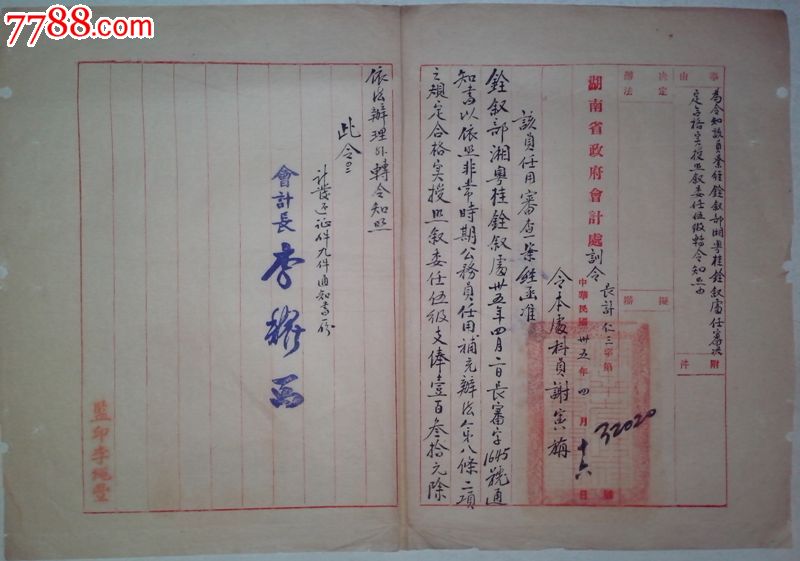 7788.com
奉
為令知該員業經銓敘部湘粵桂銓敘處任審決
定合格實授照敘委任伍級轉令知照由
附
件
由
決定
辦法
擬
辦
湖南省政府會計處訓令
長計仁三字第32020號
中華民國卅五年四月十六日
令本處科員謝
該員任用審查一案經函准
銓敘部湘粵桂銓敘處卅五年四月二日長審字1645號通
知書以依照非常時期公務員任用補充辦法第八條二項
之規定合格實授照敘委任伍級支俸壹百叁拾元除
依法辦理外轉令知照
此令
計發還證件九件通知書一份
會計長 李
監印李